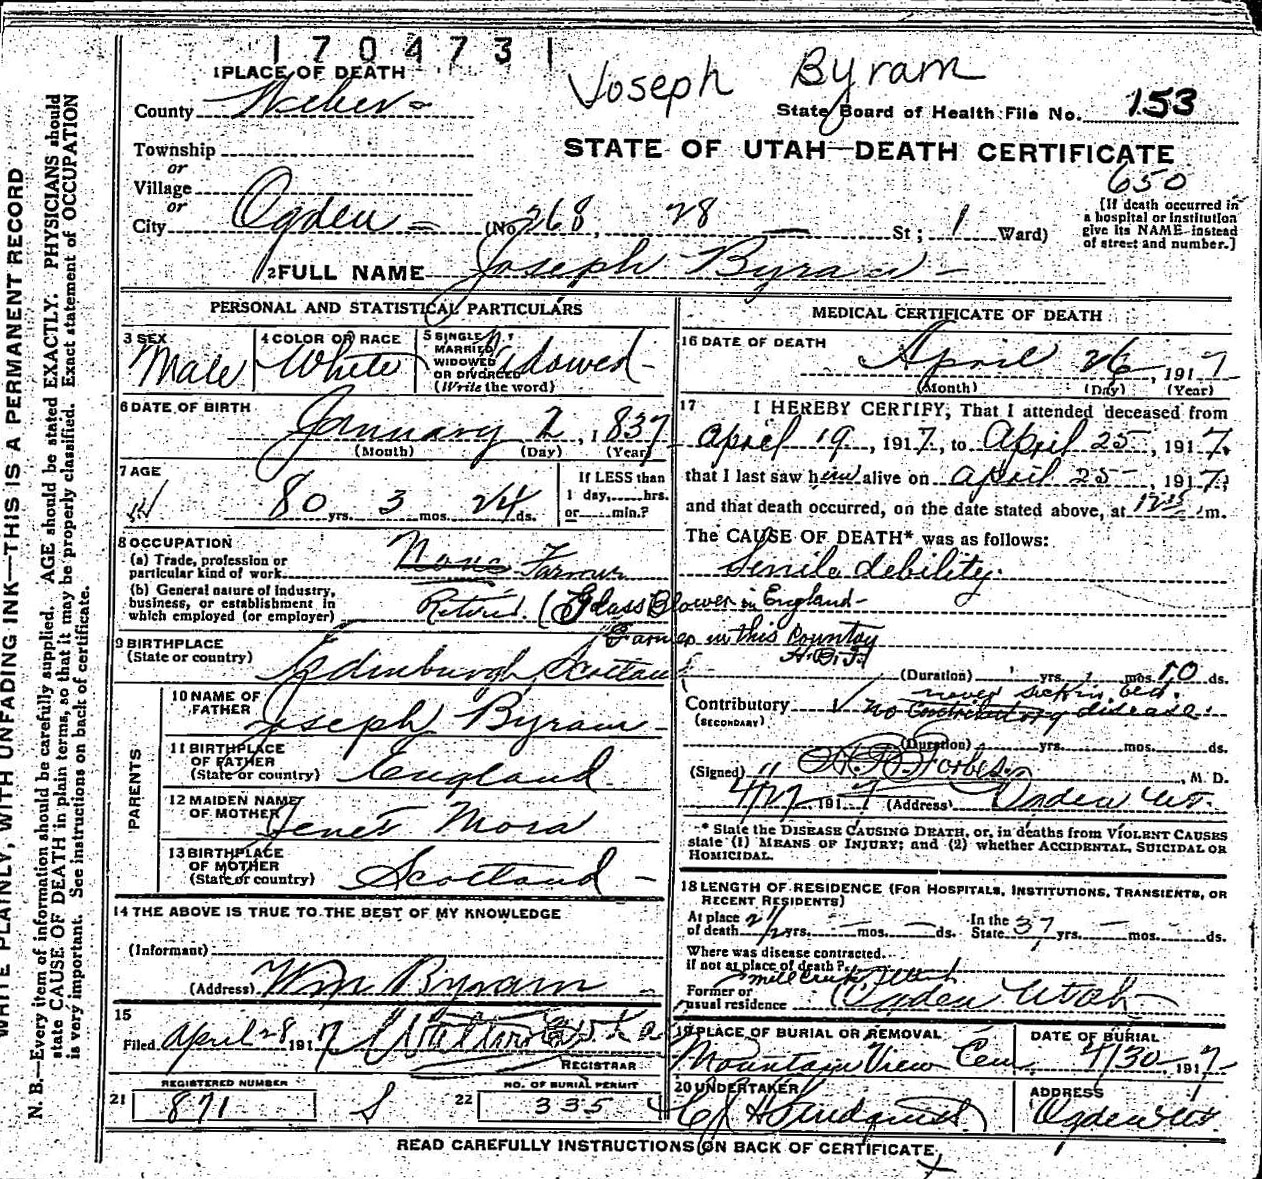 1704731
Joseph Byram
1 PLACE OF DEATH
County Weber
State Board of Health File No. 153
STATE OF UTAH—DEATH CERTIFICATE
650
Township
or
Village
or
City Ogden (No 268, 28 St; 1 Ward)
[If death occurred in a hospital or institution give its NAME instead of street and number.]
2 FULL NAME Joseph Byram
PERSONAL AND STATISTICAL PARTICULARS
3 SEX
Male
4 COLOR OR RACE
White
5 SINGLE,
MARRIED
WIDOWED
OR DIVORCED
(Write the word)
Widowed
6 DATE OF BIRTH
January 2, 1837
(Month) (Day) (Year)
7 AGE
80 yrs. 3 mos. 24 ds.
If LESS than
1 day, hrs.
or min.?
8 OCCUPATION
(a) Trade, profession or
particular kind of work None Farmer
(b) General nature of Industry,
business, or establishment in
which employed (or employer) Retired. (Glass Blower in England
Farmer in this Country
H.B.F.
9 BIRTHPLACE
(State or country) Edinburgh Scotland
PARENTS
10 NAME OF
FATHER Joseph Byram
11 BIRTHPLACE
OF FATHER
(State or country) England
12 MAIDEN NAME
OF MOTHER Jenet
13 BIRTHPLACE
OF MOTHER
(State or country) Scotland
14 THE ABOVE IS TRUE TO THE BEST OF MY KNOWLEDGE
(Informant)
(Address) Wm Byram
15
Filed April 28 1917
REGISTRAR
REGISTERED NUMBER
21 871
S
NO. OF BURIAL PERMIT
22 335
MEDICAL CERTIFICATE OF DEATH
16 DATE OF DEATH
April 26, 1917
(Month) (Day) (Year)
17 I HEREBY CERTIFY, That I attended deceased from
April 19, 1917, to April 25, 1917,
that I last saw him alive on April 25, 1917,
and that death occurred, on the date stated above, at m.
The CAUSE OF DEATH* was as follows:
Senile debility.
(Duration) yrs. mos. 10 ds.
never sick in bed.
Contributory no Contributory disease.
(SECONDARY)
(Duration) yrs. mos. ds.
(Signed) H.B. Forbes, M. D.
4/27 1917 (Address) Ogden Ut.
* State the DISEASE CAUSING DEATH, or, in deaths from VIOLENT CAUSES
state (1) MEANS OF INJURY; and (2) whether ACCIDENTAL, SUICIDAL OR
HOMICIDAL.
18 LENGTH OF RESIDENCE (FOR HOSPITALS, INSTITUTIONS, TRANSIENTS, OR
RECENT RESIDENTS)
At place
of death yrs. mos. ds. In the
State 37 yrs. mos. ds.
Where was disease contracted.
if not at place of death?
Mill Creek Utah
Former or
usual residence Ogden Utah
19 PLACE OF BURIAL OR REMOVAL
Mountain View Cem
DATE OF BURIAL
4/30, 1917
20 UNDERTAKER
ADDRESS
Ogden Ut.
READ CAREFULLY INSTRUCTIONS ON BACK OF CERTIFICATE
WRITE PLAINLY, WITH UNFADING INK—THIS IS A PERMANENT RECORD
N. B.—Every item of information should be carefully supplied. AGE should be stated EXACTLY. PHYSICIANS should
state CAUSE OF DEATH in plain terms, so that it may be properly classified. Exact statement of OCCUPATION
is very important. See instructions on back of certificate.